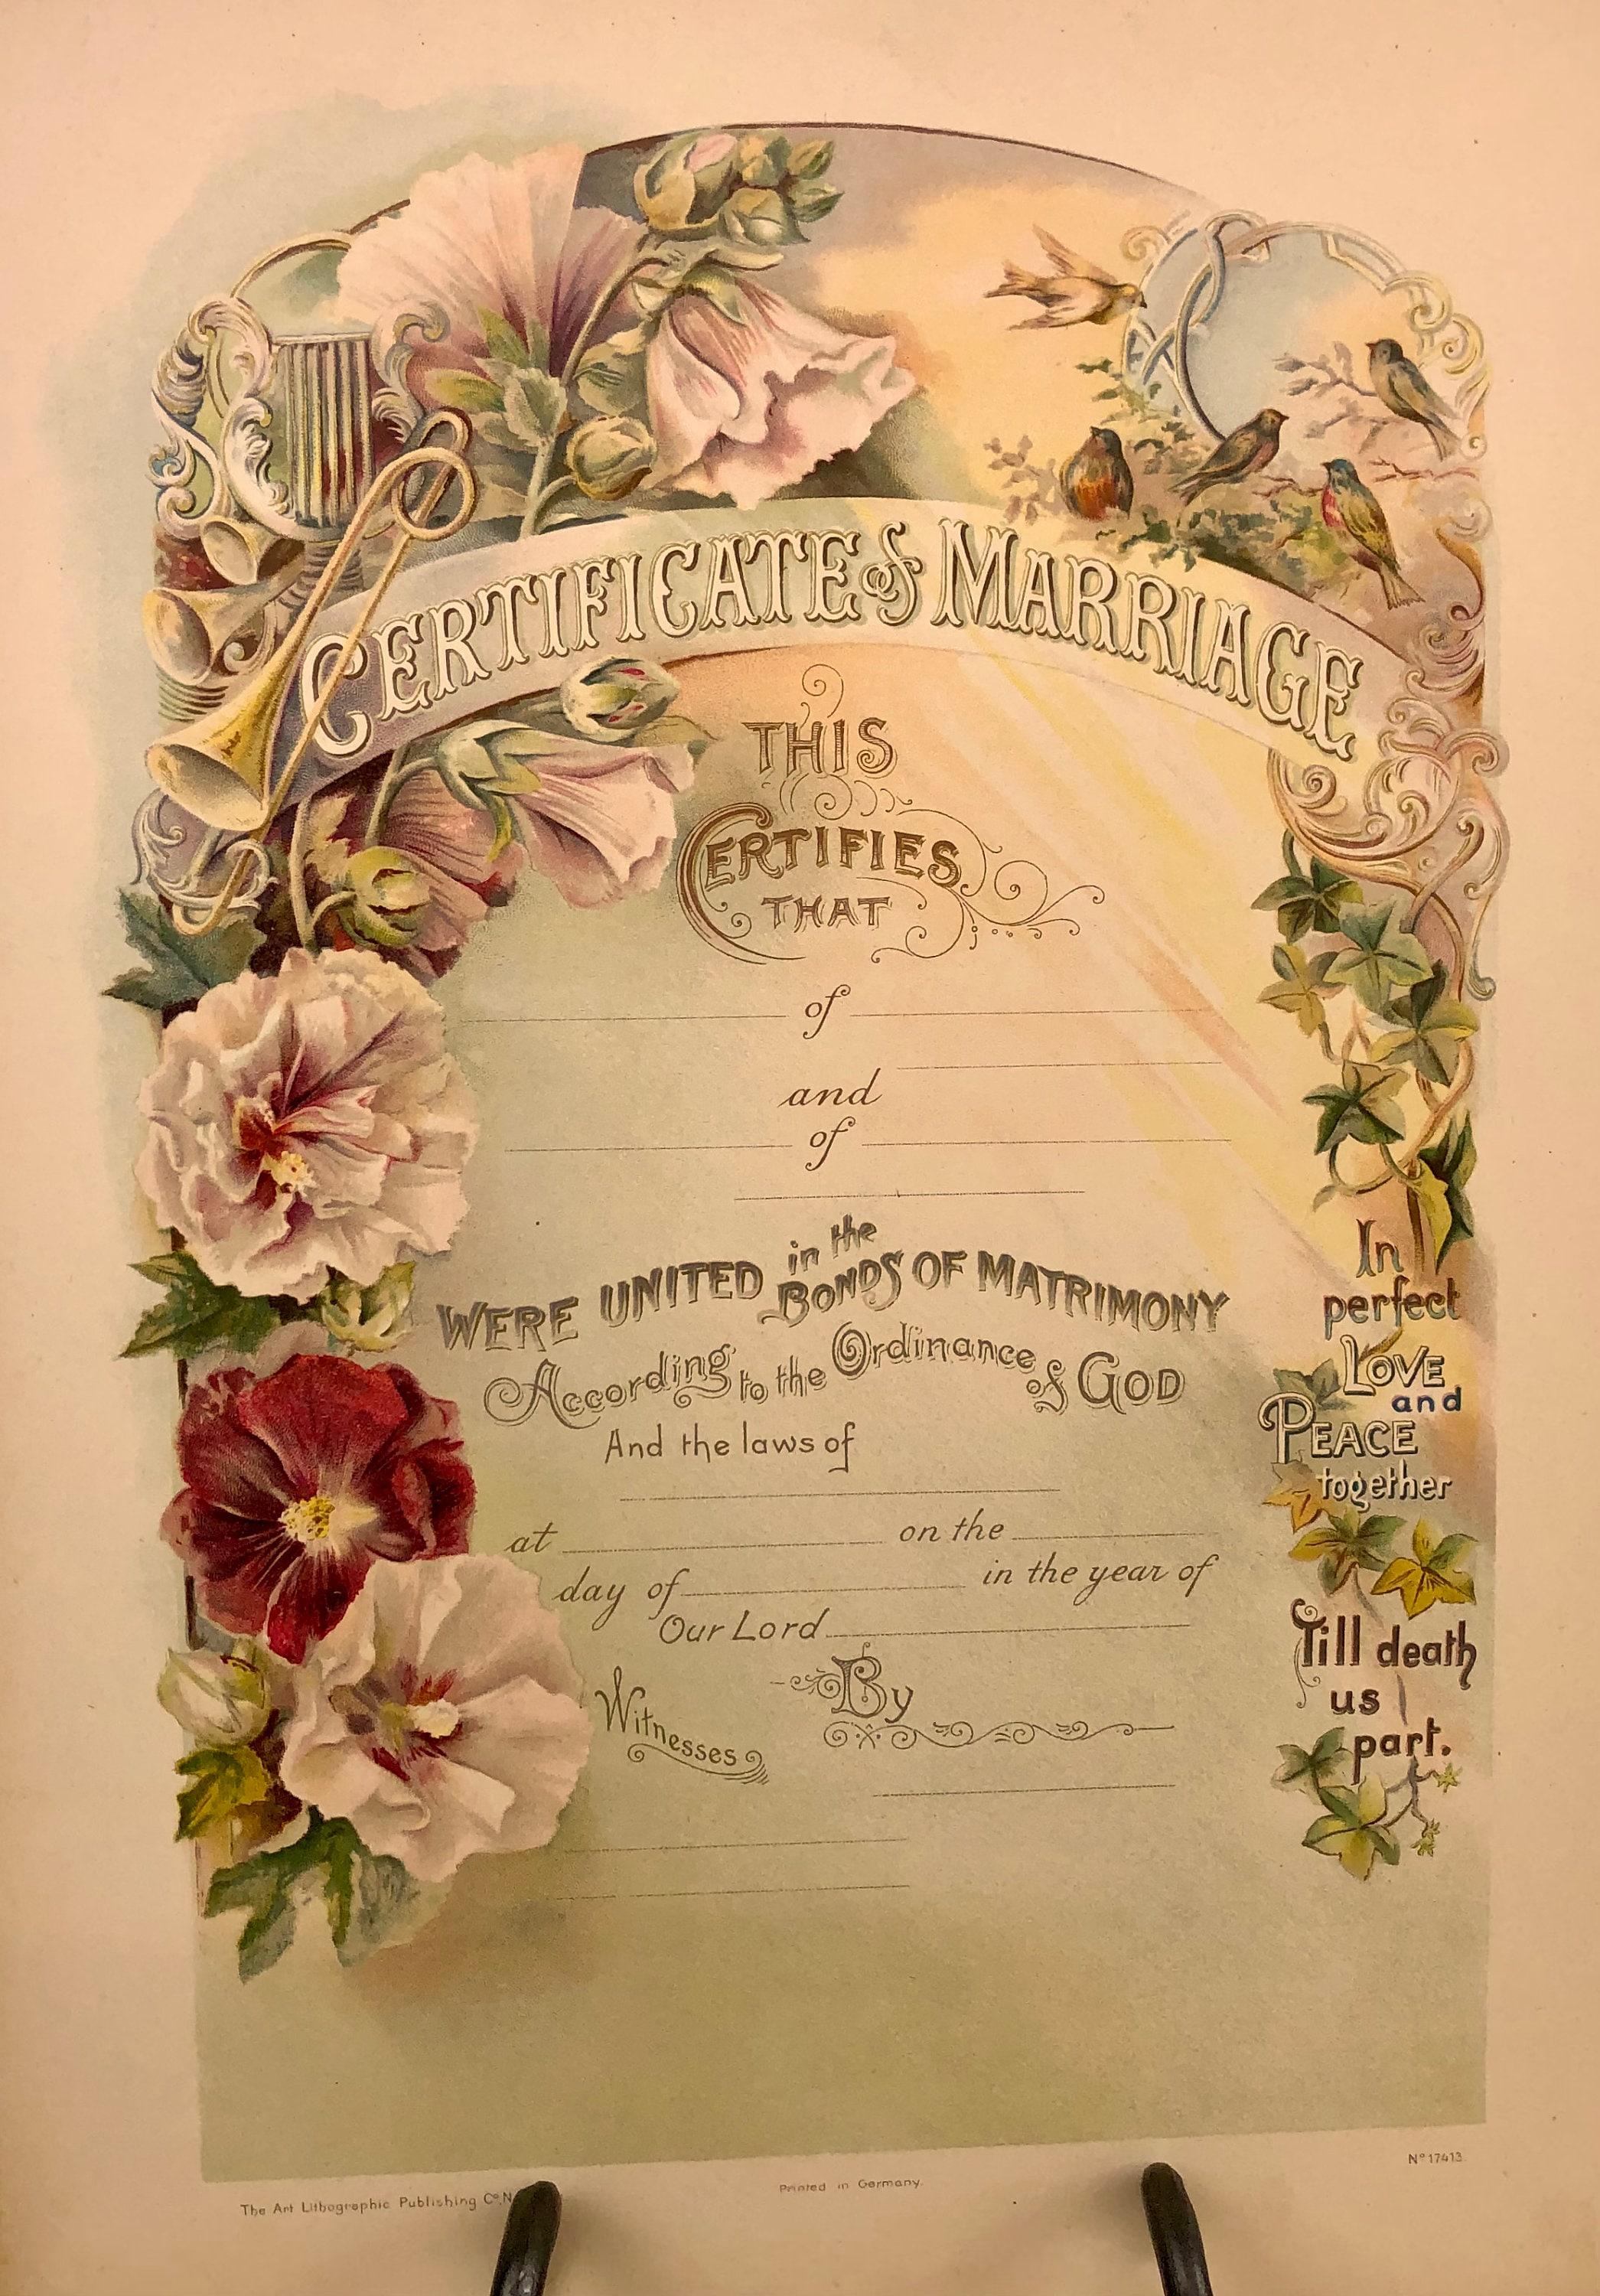 CERTIFICATE of MARRIAGE
THIS
CERTIFIES
THAT
of
and
of
WERE UNITED in the BONDS OF MATRIMONY
According to the Ordinance of GOD
And the laws of
at on the
day of in the year of
Our Lord
By
Witnesses
In
perfect
LOVE
and
PEACE
together
Till death
us
part.
The Art Lithographic Publishing Co. N
Printed in Germany.
No 17413.